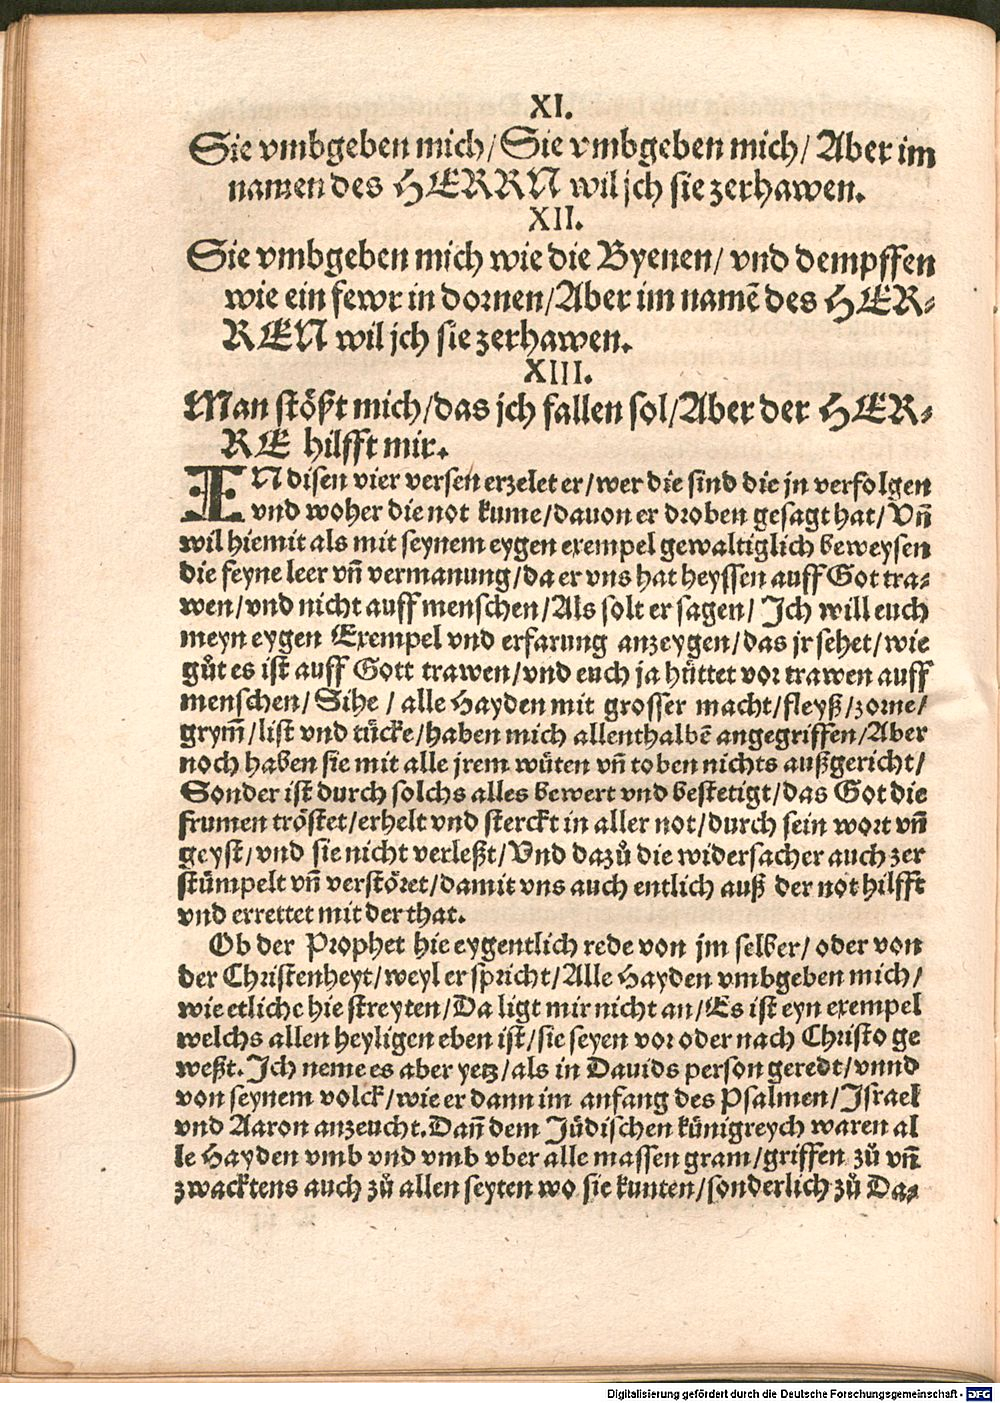 XI.
Sie vmbgeben mich/ Sie vmbgeben mich/ Aber im
namen des HERRN wil jch sie zerhawen.
XII.
Sie vmbgeben mich wie die Byenen/ vnd dempffen
wie ein fewr in dornen/ Aber im namē des HER⸗
REN wil jch sie zerhawen.
XIII.
Man stößt mich/ das jch fallen sol/ Aber der HER⸗
RE hilfft mir.
IN disen vier versen erzelet er/ wer die sind die jn verfolgen
vnd woher die not kume/ dauon er droben gesagt hat/ Vñ
wil hiemit als mit seynem eygen exempel gewaltiglich beweysen
die feyne leer vñ vermanung/ da er vns hat heyssen auff Got tra⸗
wen/ vnd nicht auff menschen/ Als solt er sagen/ Ich will euch
meyn eygen Exempel vnd erfarung anzeygen/ das jr sehet/ wie
gůt es ist auff Gott trawen/ vnd euch ja hüttet vor trawen auff
menschen/ Sihe / alle Hayden mit grosser macht/ fleyß/ zorne/
grym̄/ list vnd tücke/ haben mich allenthalbē angegriffen/ Aber
noch haben sie mit alle jrem wüten vñ toben nichts außgericht/
Sonder ist durch solchs alles bewert vnd bestetigt/ das Got die
frumen tröstet/ erhelt vnd sterckt in aller not/ durch sein wort vñ
geyst/ vnd sie nicht verleßt/ Vnd dazů die widersacher auch zer
stümpelt vñ verstöret/ damit vns auch entlich auß der not hilfft
vnd errettet mit der that.
Ob der Prophet hie eygentlich rede von jm selber/ oder von
der Christenheyt/ weyl er spricht/ Alle Hayden vmbgeben mich/
wie etliche hie streyten/ Da ligt mir nicht an/ Es ist eyn exempel
welchs allen heyligen eben ist/ sie seyen vor oder nach Christo ge
weßt. Ich neme es aber yetz/ als in Dauids person geredt/ vnnd
von seynem volck/ wie er dann im anfang des Psalmen/ Israel
vnd Aaron anzeucht. Dañ dem Jüdischen künigreych waren al
le Hayden vmb vnd vmb vber alle massen gram/ griffen zů vñ
zwacktens auch zů allen seyten wo sie kunten/ sonderlich zů Da⸗
Digitalisierung gefördert durch die Deutsche Forschungsgemeinschaft - DFG